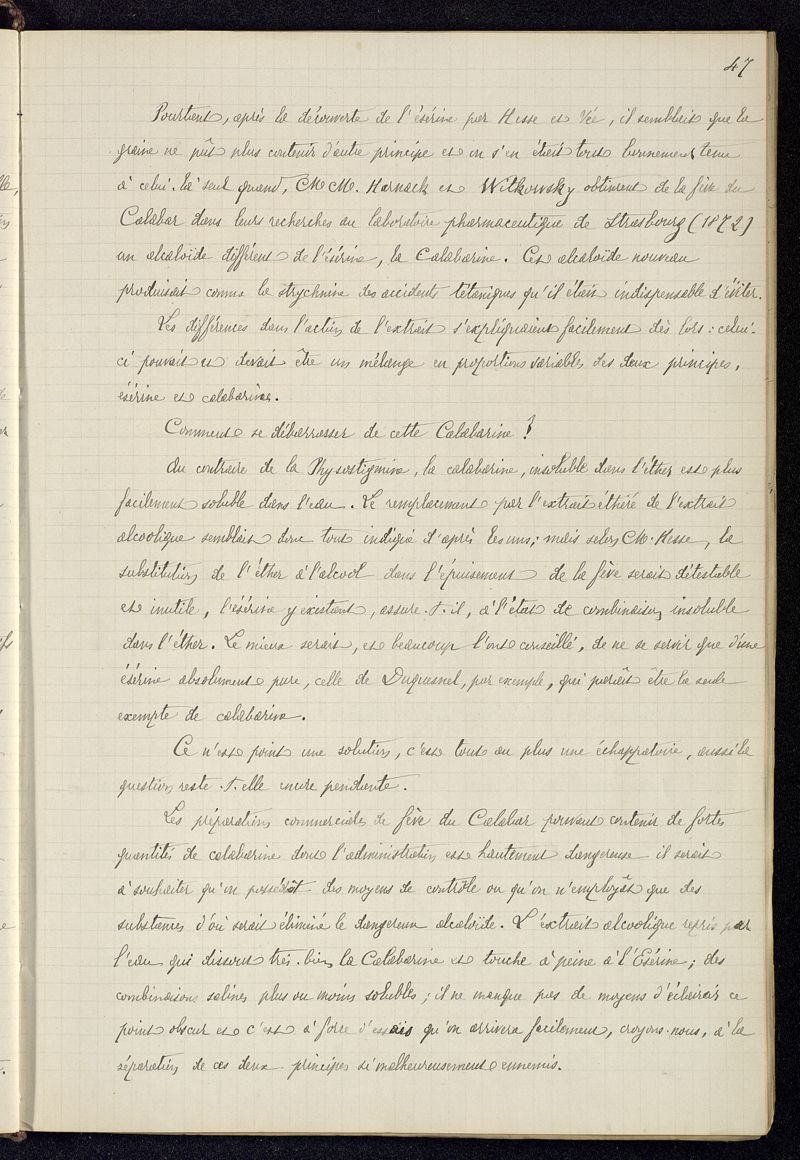 47
Pourtant, après la découverte de l'ésérine par Hesse et Vée, il semblait que la
graine ne pût plus contenir d'autre principe et on s'en était tout bonnement tenu
à celui-là seul quand, MM. Harnack et Witkowsky obtinrent de la fève du
Calabar dans leurs recherches au laboratoire pharmaceutique de Strasbourg (1872)
un alcaloïde différent de l'ésérine, la Calabarine. Cet alcaloïde nouveau
produisait comme la strychnine des accidents tétaniques qu'il était indispensable d'éviter.
Les différences dans l'action de l'extrait s'expliquaient facilement dès lors : celui-
ci pouvait et devait être un mélange en proportions variables des deux principes,
ésérine et calabarine.
Comment se débarrasser de cette Calabarine ?
Au contraire de la Physostigmine, la calabarine, insoluble dans l'éther est plus
facilement soluble dans l'eau. Le remplacement par l'extrait éthéré de l'extrait
alcoolique semblait donc tout indiqué d'après les uns ; mais selon M. Hesse, la
substitution de l'éther à l'alcool dans l'épuisement de la fève serait détestable
et inutile, l'ésérine y existant, assure-t-il, à l'état de combinaison insoluble
dans l'éther. Le mieux serait, et beaucoup l'ont conseillé, de ne se servir que d'une
ésérine absolument pure, celle de Duquesnel, par exemple, qui paraît être la seule
exempte de calabarine.
Ce n'est point une solution, c'est tout au plus une échappatoire, aussi la
question reste-t-elle encore pendante.
Les préparations commerciales de fève du Calabar pouvant contenir de fortes
quantités de calabarine dont l'administration est hautement dangereuse il serait
à souhaiter qu'on possédât des moyens de contrôle ou qu'on n'employât que des
substances d'où serait éliminé le dangereux alcaloïde. L'extrait alcoolique repris par
l'eau qui dissout très-bien la Calabarine et touche à peine à l'Esérine ; des
combinaisons salines plus ou moins solubles ; il ne manque pas de moyens d'éclaircir ce
point obscur et c'est à force d'essais qu'on arrivera facilement, croyons-nous, à la
séparation de ces deux principes si malheureusement ennemis.